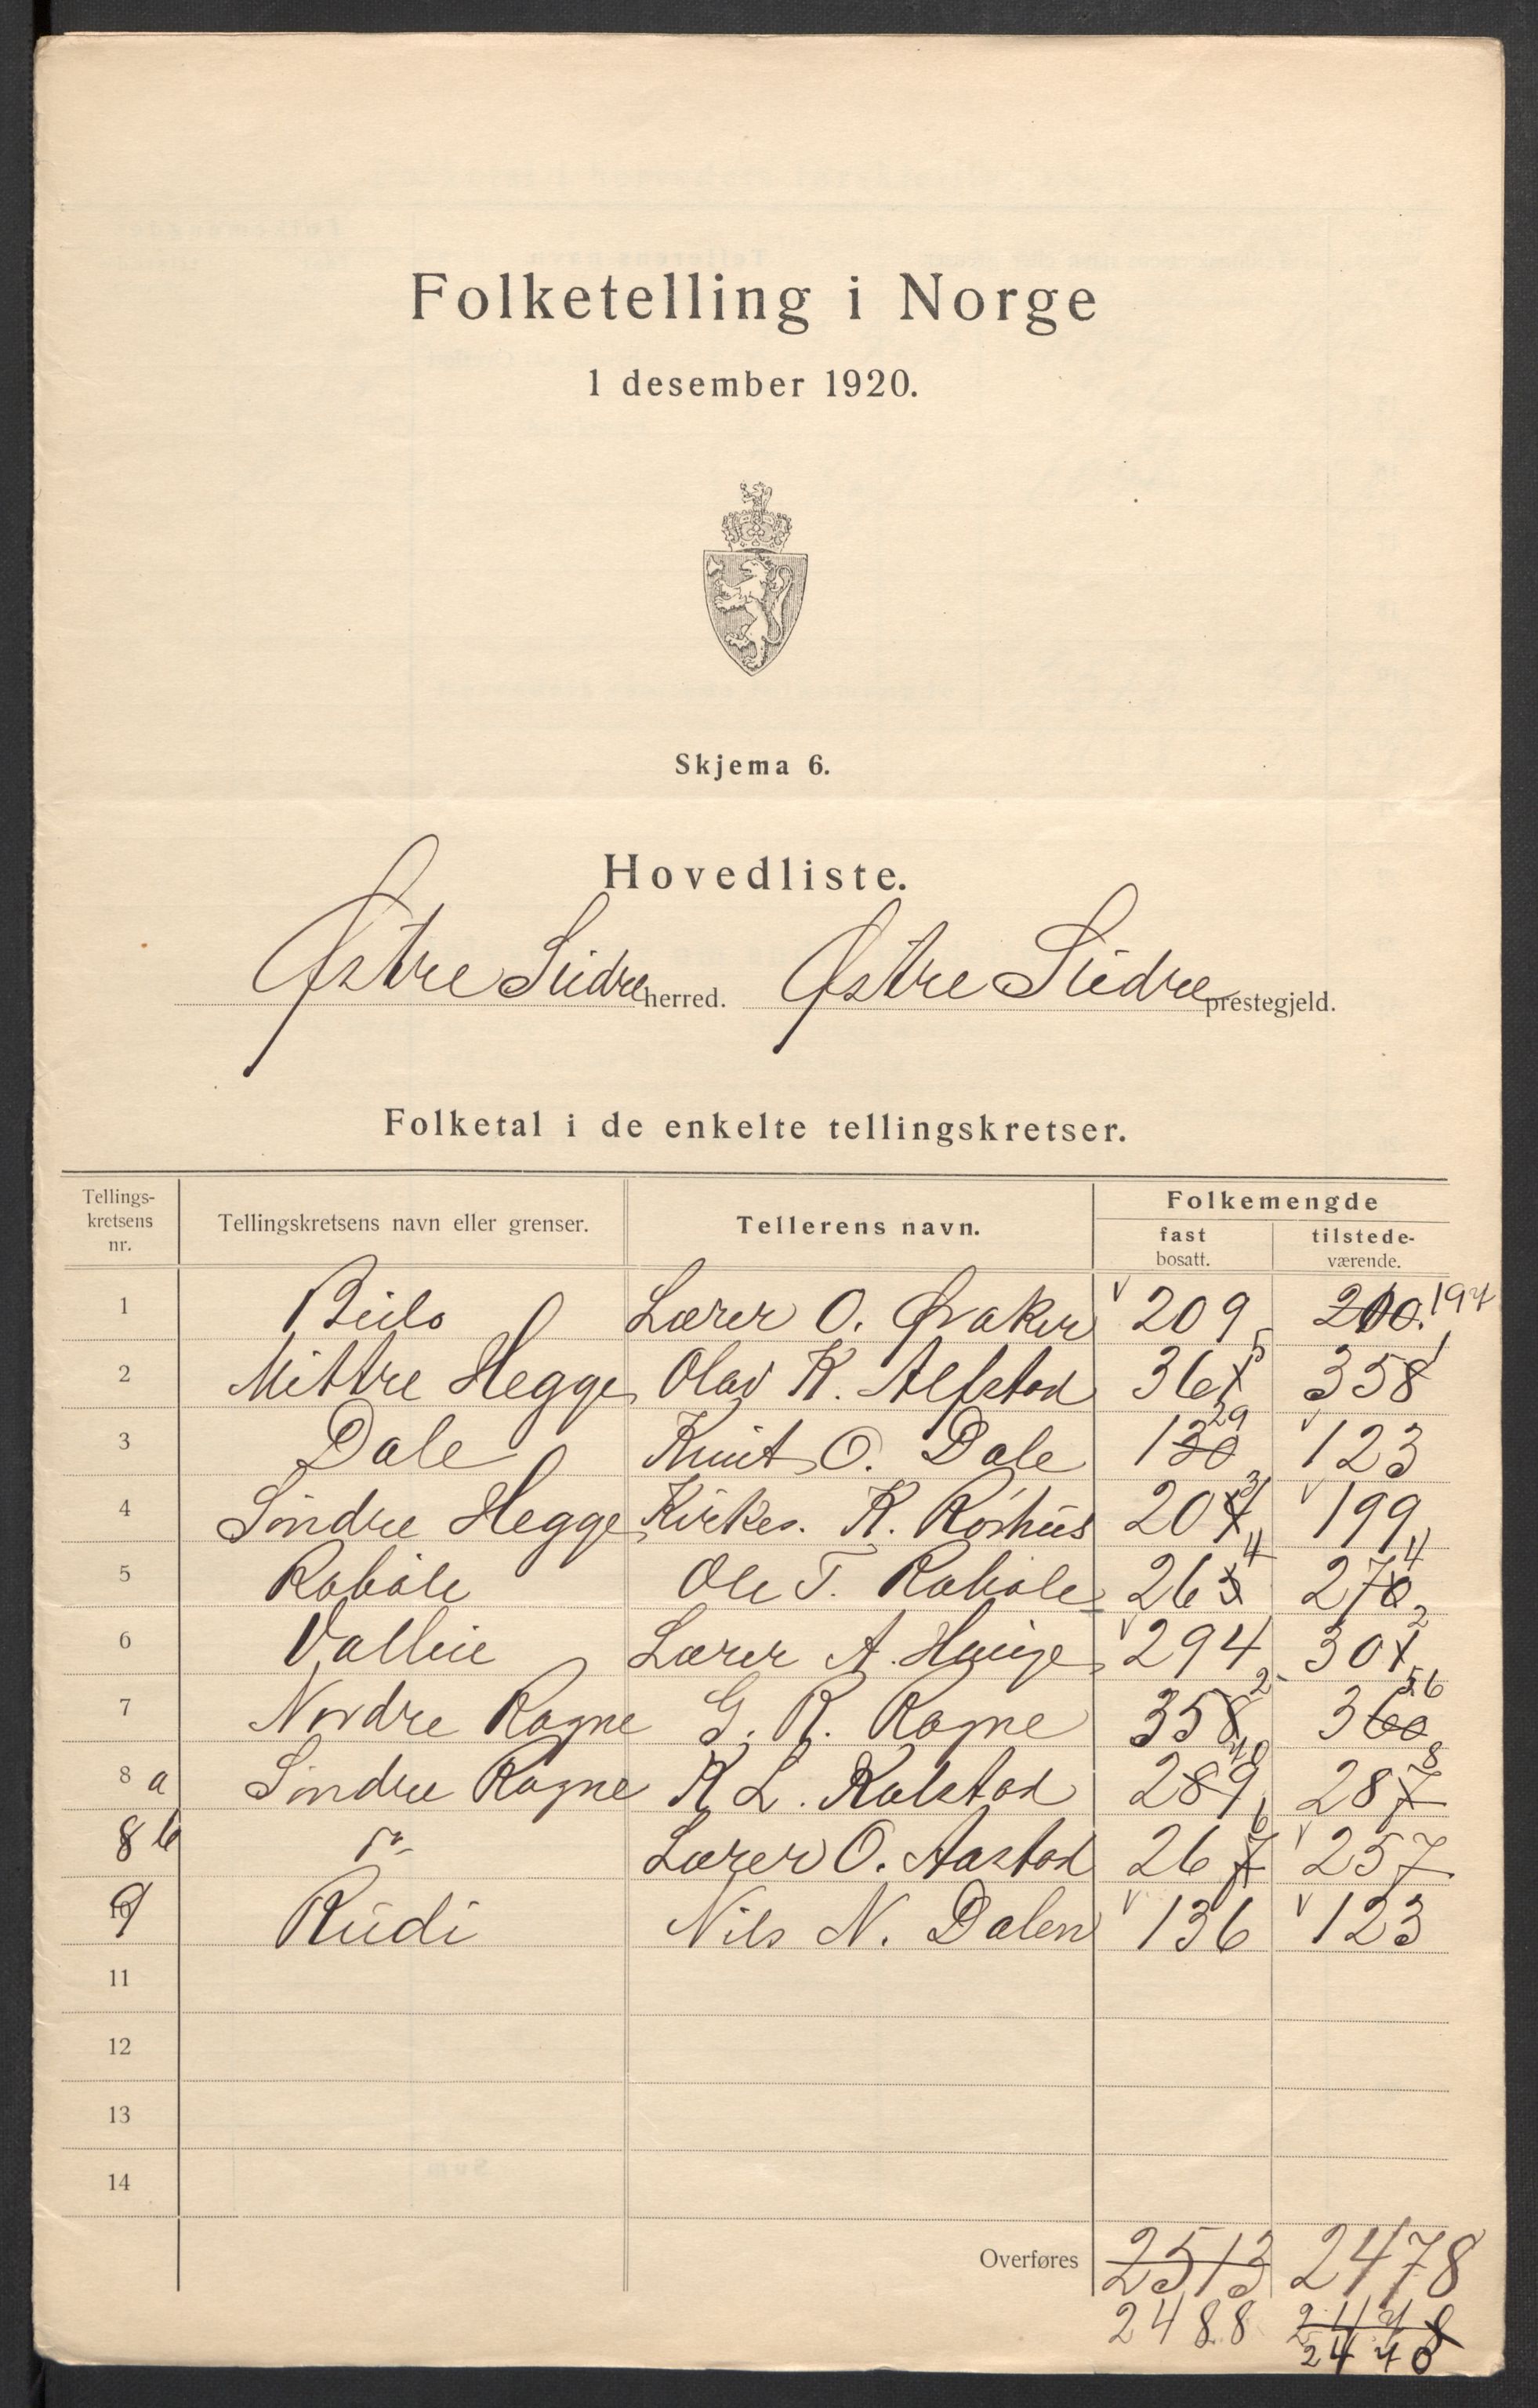 Folketelling i Norge
1 desember 1920.
Skjema 6.
Hovedliste.
Østre Slidre herred. Østre Slidre prestegjeld.
Folketal i de enkelte tellingskretser.
Tellings-kretsens nr. Tellingskretsens navn eller grenser. Tellerens navn. Folkemengde
fast bosatt. tilstede-værende.
1 Beito Lærer O. Øvaker 209 200. 197
2 Mittre Hegge Olav K. Alfstad 361 5 358 1
3 Dale Knut O. Dale 130 29 123
4 Søndre Hegge Kirkes. K. Röshus 204 3 199
5 Robøle Ole T. Robøle 263 4 270 4
6 Volbue Lærer A. Hauge 294 301 2
7 Nordre Rogne G. R. Rogne 358 2 360 56
8 a Søndre Rogne K L. Kolstad 289 287 8
8 b do Lærer O. Aastad 267 6 257
9 Rudi Nils N. Dalen 136 123
11
12
13
14
Overføres 2513 2478
2488
2440